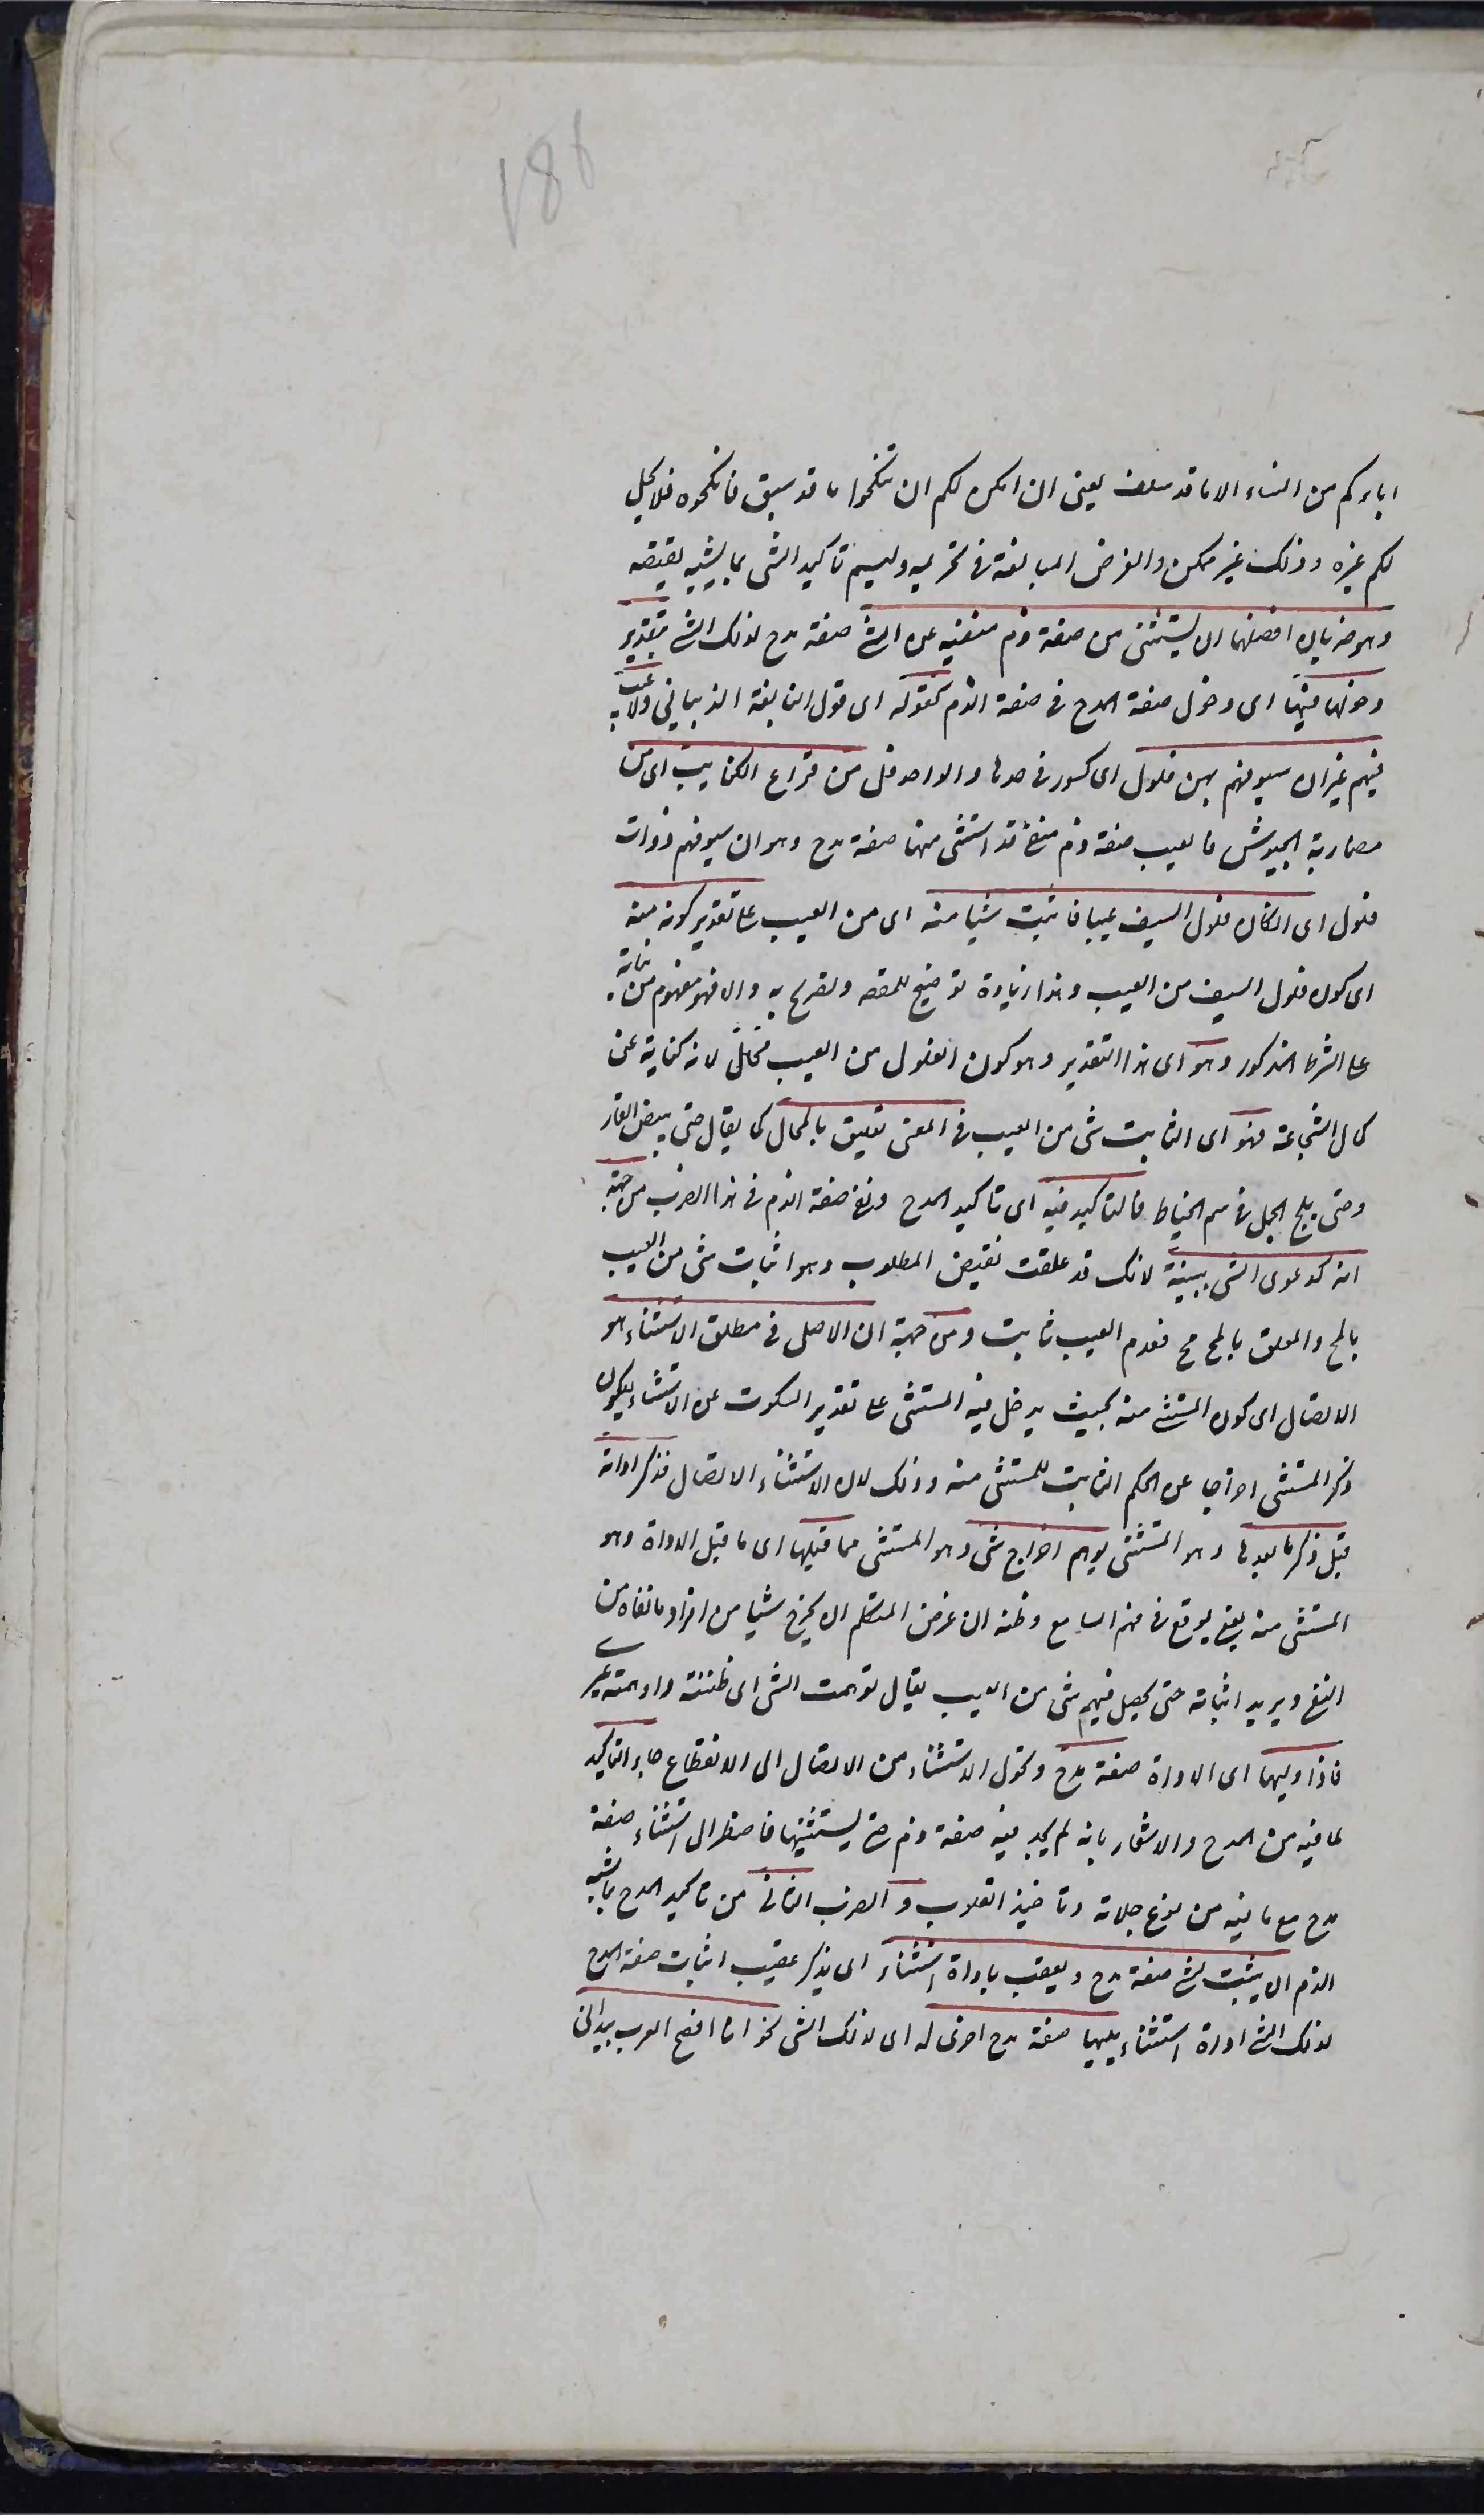 186
اباؤكم من النساء الا ما قد سلف يعنى ان امكن لكم ان تنكحوا ما قد سبق فانكحوه فلا يحل
لكم غيره وذلك غير ممكن والغرض المبالغة فى تحريمه وليسم تاكيد الشى بما يشبه نقيضه
وهو ضربان افضلهما ان يستثنى من صفة ذم منفيه عن الشئ صفة مدح لذلك الشئ بتقدير
دخولها فيها اى دخول صفة المدح فى صفة الذم كقوله اى قول النابغة الذبيانى ولا عيب
فيهم غير ان سيوفهم بهن فلول اى كسور فى حدها والواحد فل من قراع الكتايب اى من
مضاربة الجيوش فالعيب صفة ذم منفية قد استثنى منها صفة مدح وهو ان سيوفهم ذوات
فلول اى ان كان فلول السيف عيبا فاثبت شيا منه اى من العيب على تقدير كونه منه
اى كون فلول السيف من العيب وهذا زيادة توضيح للمقصه وتصريح به والا فهو مفهوم من بنائه
على الشرط المذكور وهو اى هذا التقدير وهو كون الفلول من العيب محال لانه كناية عن
كمال الشجاعة فهو اى اثبات شى من العيب فى المعنى تعليق بالمحال كما يقال حتى يبيض القار
وحتى يلج الجمل فى سم الخياط فالتاكيد فيه اى تاكيد المدح ونفى صفة الذم فى هذا الضرب من جهة
انه كدعوى الشى ببينة لانك قد علقت نقيض المطلوب وهو اثبات شى من العيب
بالمح والمعلق بالمح مح فعدم العيب ثابت ومن جهة ان الاصل فى مطلق الاستثناء هو
الاتصال اى كون المستثنى منه بحيث يدخل فيه المستثنى على تقدير السكوت عن الاستثناء ليكون
ذكر المستثنى اخراجا عن الحكم الثابت للمستثنى منه وذلك لان الاستثناء الاتصال فذكر اداته
قبل ذكر ما بعدها وهو المستثنى يوهم اخراج شى وهو المستثنى مما قبلها اى ما قبل الاداة وهو
المستثنى منه يعنى يوقع فى فهم السامع وظنه ان غرض المتكلم ان يخرج شيا من افراد ما نفاه من
النفى ويريد اثباته حتى يحصل فيهم شى من العيب يقال توهمت الشى اى ظننته واوهمته غيرى
فاذا وليها اى الاداة صفة مدح وتحول الاستثناء من الاتصال الى الانقطاع جاء التاكيد
لما فيه من المدح والاشعار بانه لم يجد فيه صفة ذم حتى يستثنيها فاضطر الى استثناء صفة
مدح مع ما فيه من نوع خلابة وتاخيذ القلوب و الضرب الثانى من تاكيد المدح بما يشبه
الذم ان يثبت لشئ صفة مدح ويعقب باداة استثناء اى يذكر عقيب اثبات صفة المدح
لذلك الشئ اداة استثناء يليها صفة مدح اخرى له اى لذلك الشى نحو انا افصح العرب بيد انى